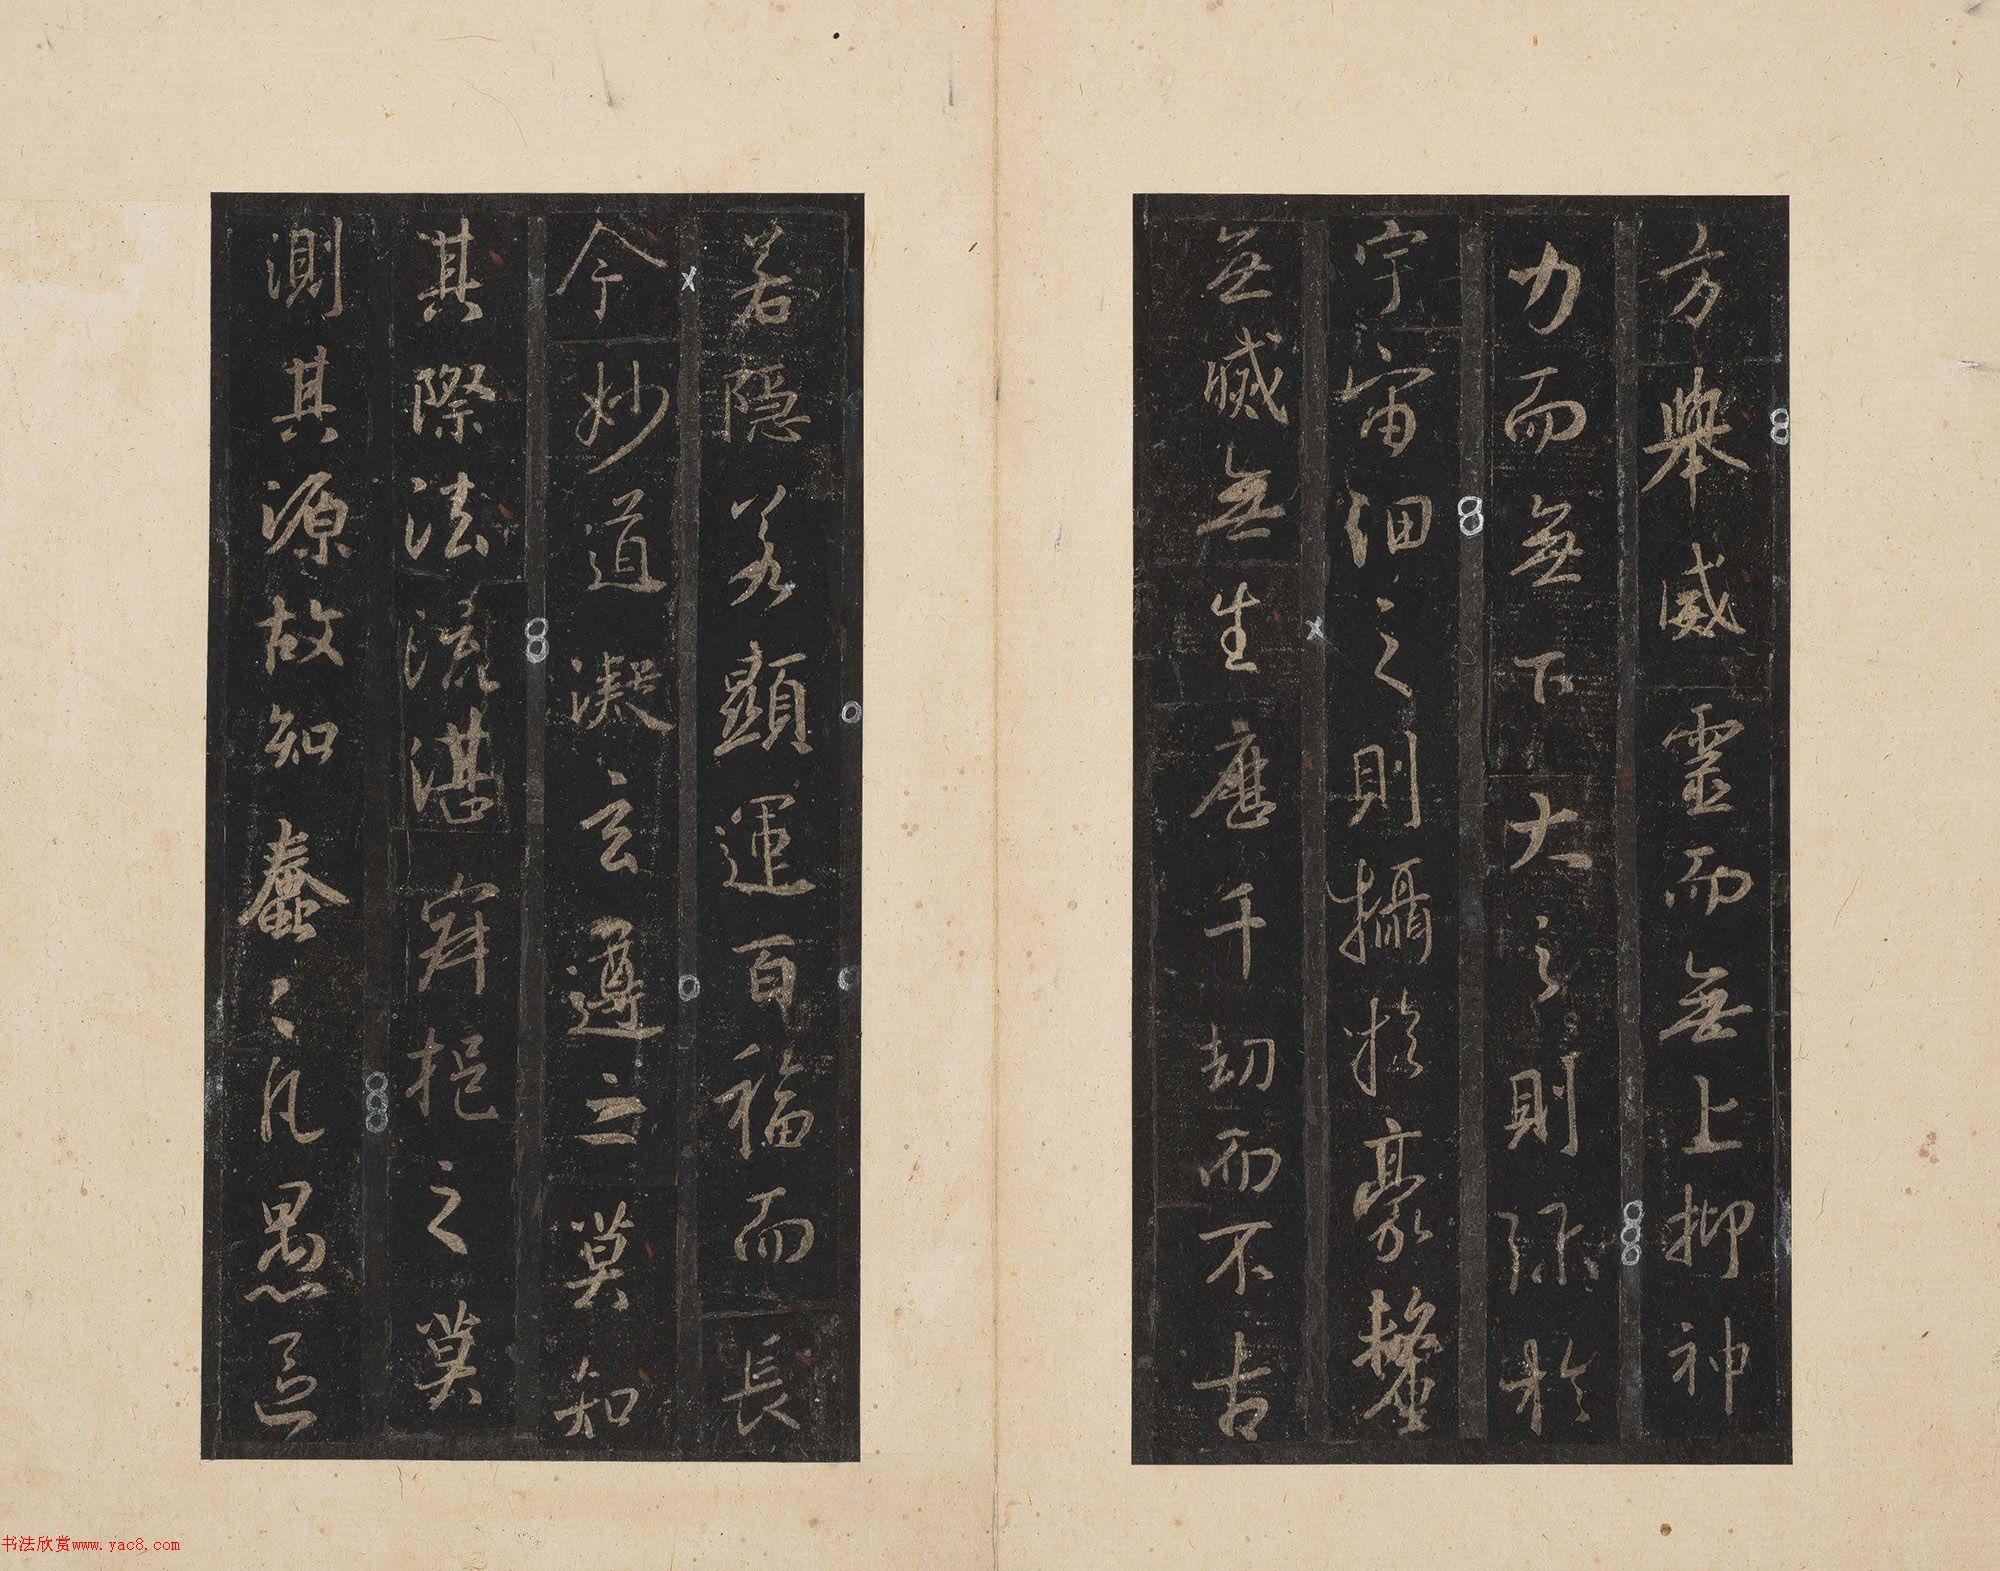 方舉威靈而無上抑神
力而無下大之則彌於
宇宙細之則攝於豪釐
無滅無生歷千劫而不古
若隱若顯運百福而長
今妙道凝玄遵之莫知
其際法流湛寂挹之莫
測其源故知蠢〻凡愚區
书法欣赏www.yac8.com